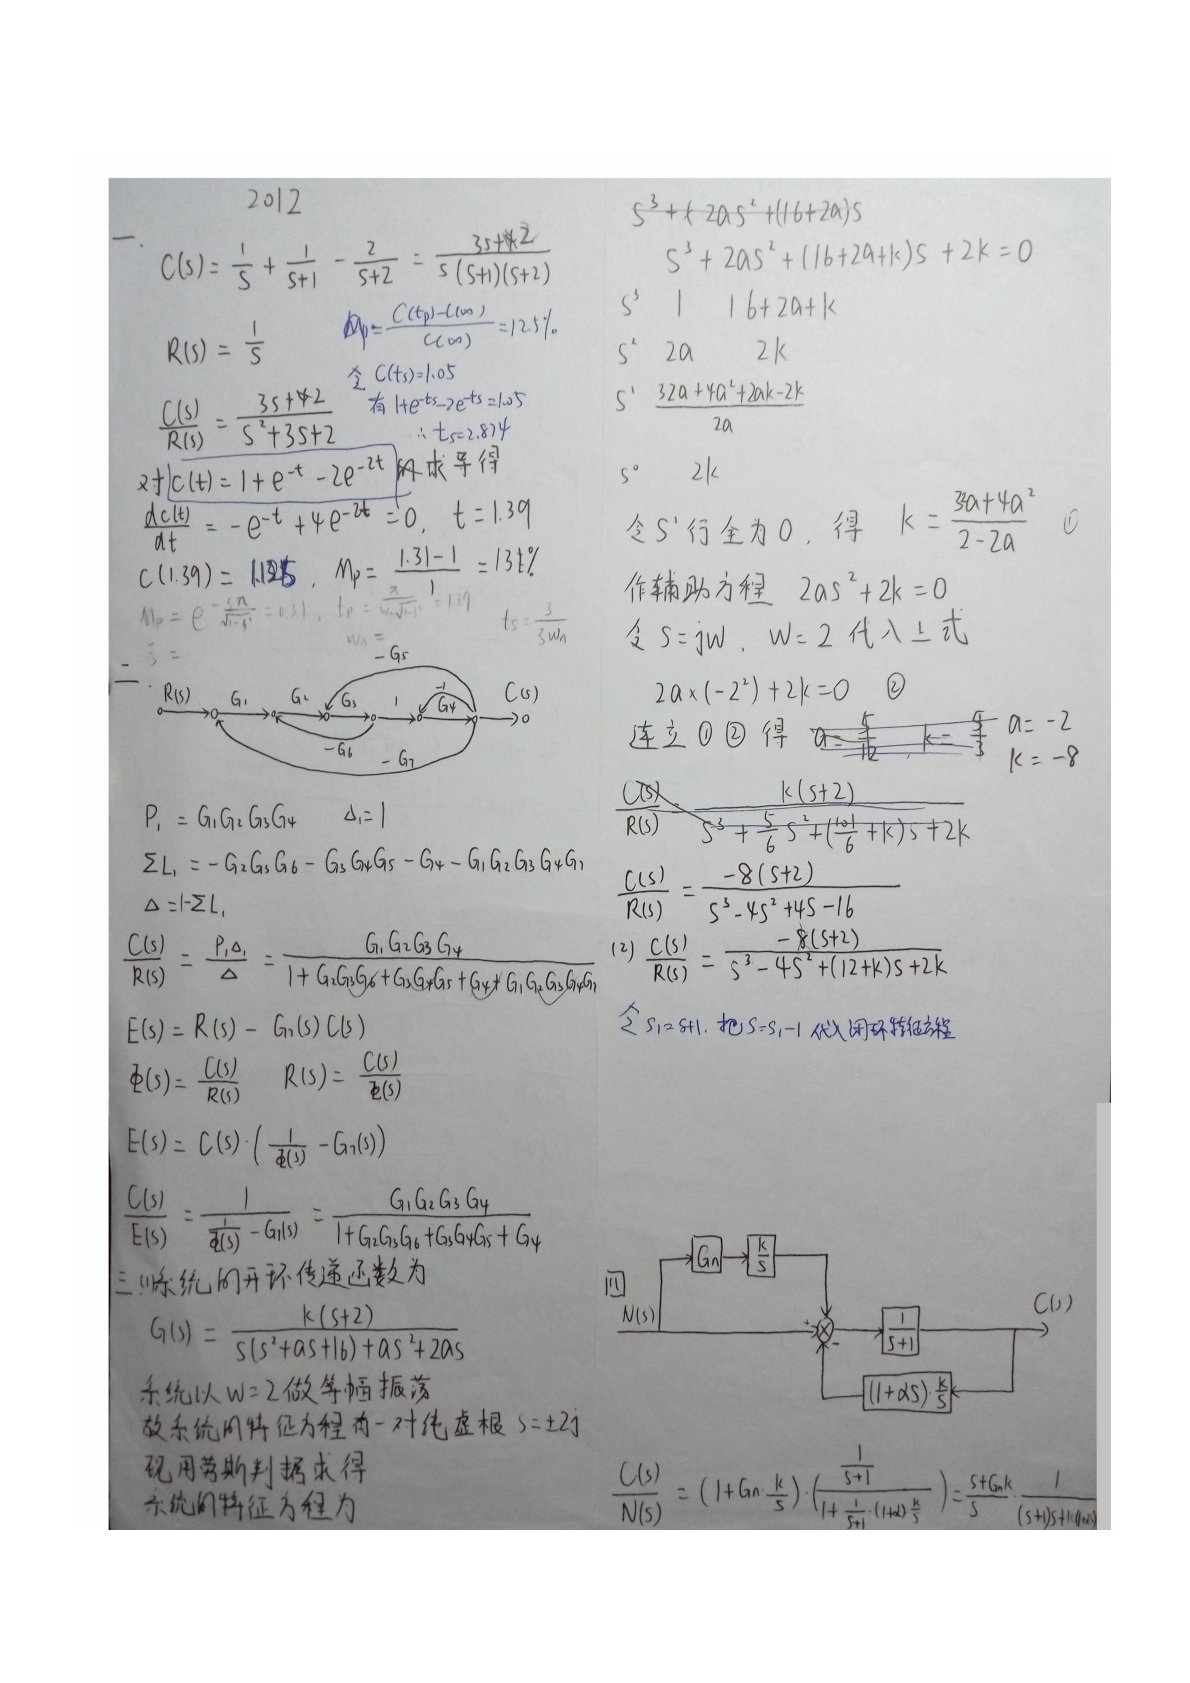 2012
一.
C(s) = 1/s + 1/(s+1) - 2/(s+2) = (3s+2)/(s(s+1)(s+2))
R(s) = 1/s
Mp = (C(tp)-C(∞))/C(∞) = 12.5%
令 C(ts)=1.05
有 1+e^-ts-2e^-ts=1.05
∴ ts=2.874
C(s)/R(s) = (3s+2)/(s²+3s+2)
对 c(t) = 1+e^-t - 2e^-2t 求导得
dc(t)/dt = -e^-t + 4e^-2t = 0, t = 1.39
C(1.39) = 1.125, Mp = (1.31-1)/1 = 13%
ts = 3/(3Wn)
二.
R(s) G₁ G₂ G₃ 1 G₄ C(s)
-G₅
-1
-G₆
-G₇
P₁ = G₁G₂G₃G₄ Δ₁=1
ΣL₁ = -G₂G₃G₆ - G₃G₄G₅ - G₄ - G₁G₂G₃G₄G₇
Δ = 1-ΣL₁
C(s)/R(s) = P₁Δ₁/Δ = G₁G₂G₃G₄/(1+G₂G₃G₆+G₃G₄G₅+G₄+G₁G₂G₃G₄G₇)
E(s) = R(s) - G₇(s)C(s)
Φ(s) = C(s)/R(s) R(s) = C(s)/Φ(s)
E(s) = C(s)·(1/Φ(s) - G₇(s))
C(s)/E(s) = 1/(1/Φ(s) - G₇(s)) = G₁G₂G₃G₄/(1+G₂G₃G₆+G₃G₄G₅+G₄)
三.(1)系统的开环传递函数为
G(s) = k(s+2)/(s(s²+as+16)+as²+2as)
系统以W=2做等幅振荡
故系统的特征方程有一对纯虚根 s=±2j
现用劳斯判据求得
系统的特征方程为
s³+(2as²+(16+2a)s
s³+2as²+(16+2a+k)s+2k=0
s³ 1 16+2a+k
s² 2a 2k
s¹ (32a+4a²+2ak-2k)/2a
s⁰ 2k
令S¹行全为0, 得 k = (32a+4a²)/(2-2a) ①
作辅助方程 2as²+2k=0
令 S=jW, W=2 代入上式
2a×(-2²)+2k=0 ②
连立①②得 a=-2
k=-8
C(s)/R(s) = k(s+2)/(s³+5/6 s²+(101/6+k)s+2k)
C(s)/R(s) = -8(s+2)/(s³-4s²+4s-16)
(2) C(s)/R(s) = -8(s+2)/(s³-4s²+(12+k)s+2k)
令 s₁=s+1, 把s=s₁-1 代入闭环特征方程
四
N(s) Gn k/s + - 1/(s+1) C(s)
(1+αs)·k/s
C(s)/N(s) = (1+Gn·k/s)·((1/(s+1))/(1+1/(s+1)·(1+α)·k/s)) = (s+Gnk)/s ·